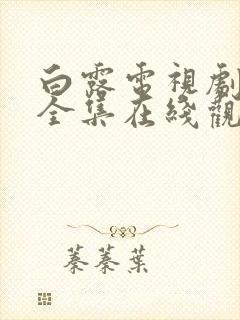 白露電視劇
全集在綫觀
蓁蓁葉